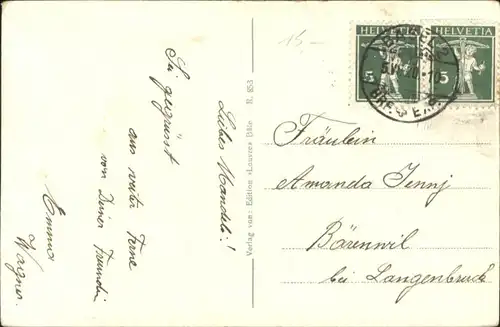 Liebes Mandeli!
Sei gegrüsst
aus weiter Ferne
von Deiner Freundin
Emma
Wagner.
Verlag von: Edition «Louvre» Bâle N. 853
15-
HELVETIA HELVETIA
5 5
BASEL 2
BRF.
Fräulein
Amanda Jenny
Bärenwil
bei Langenbruck